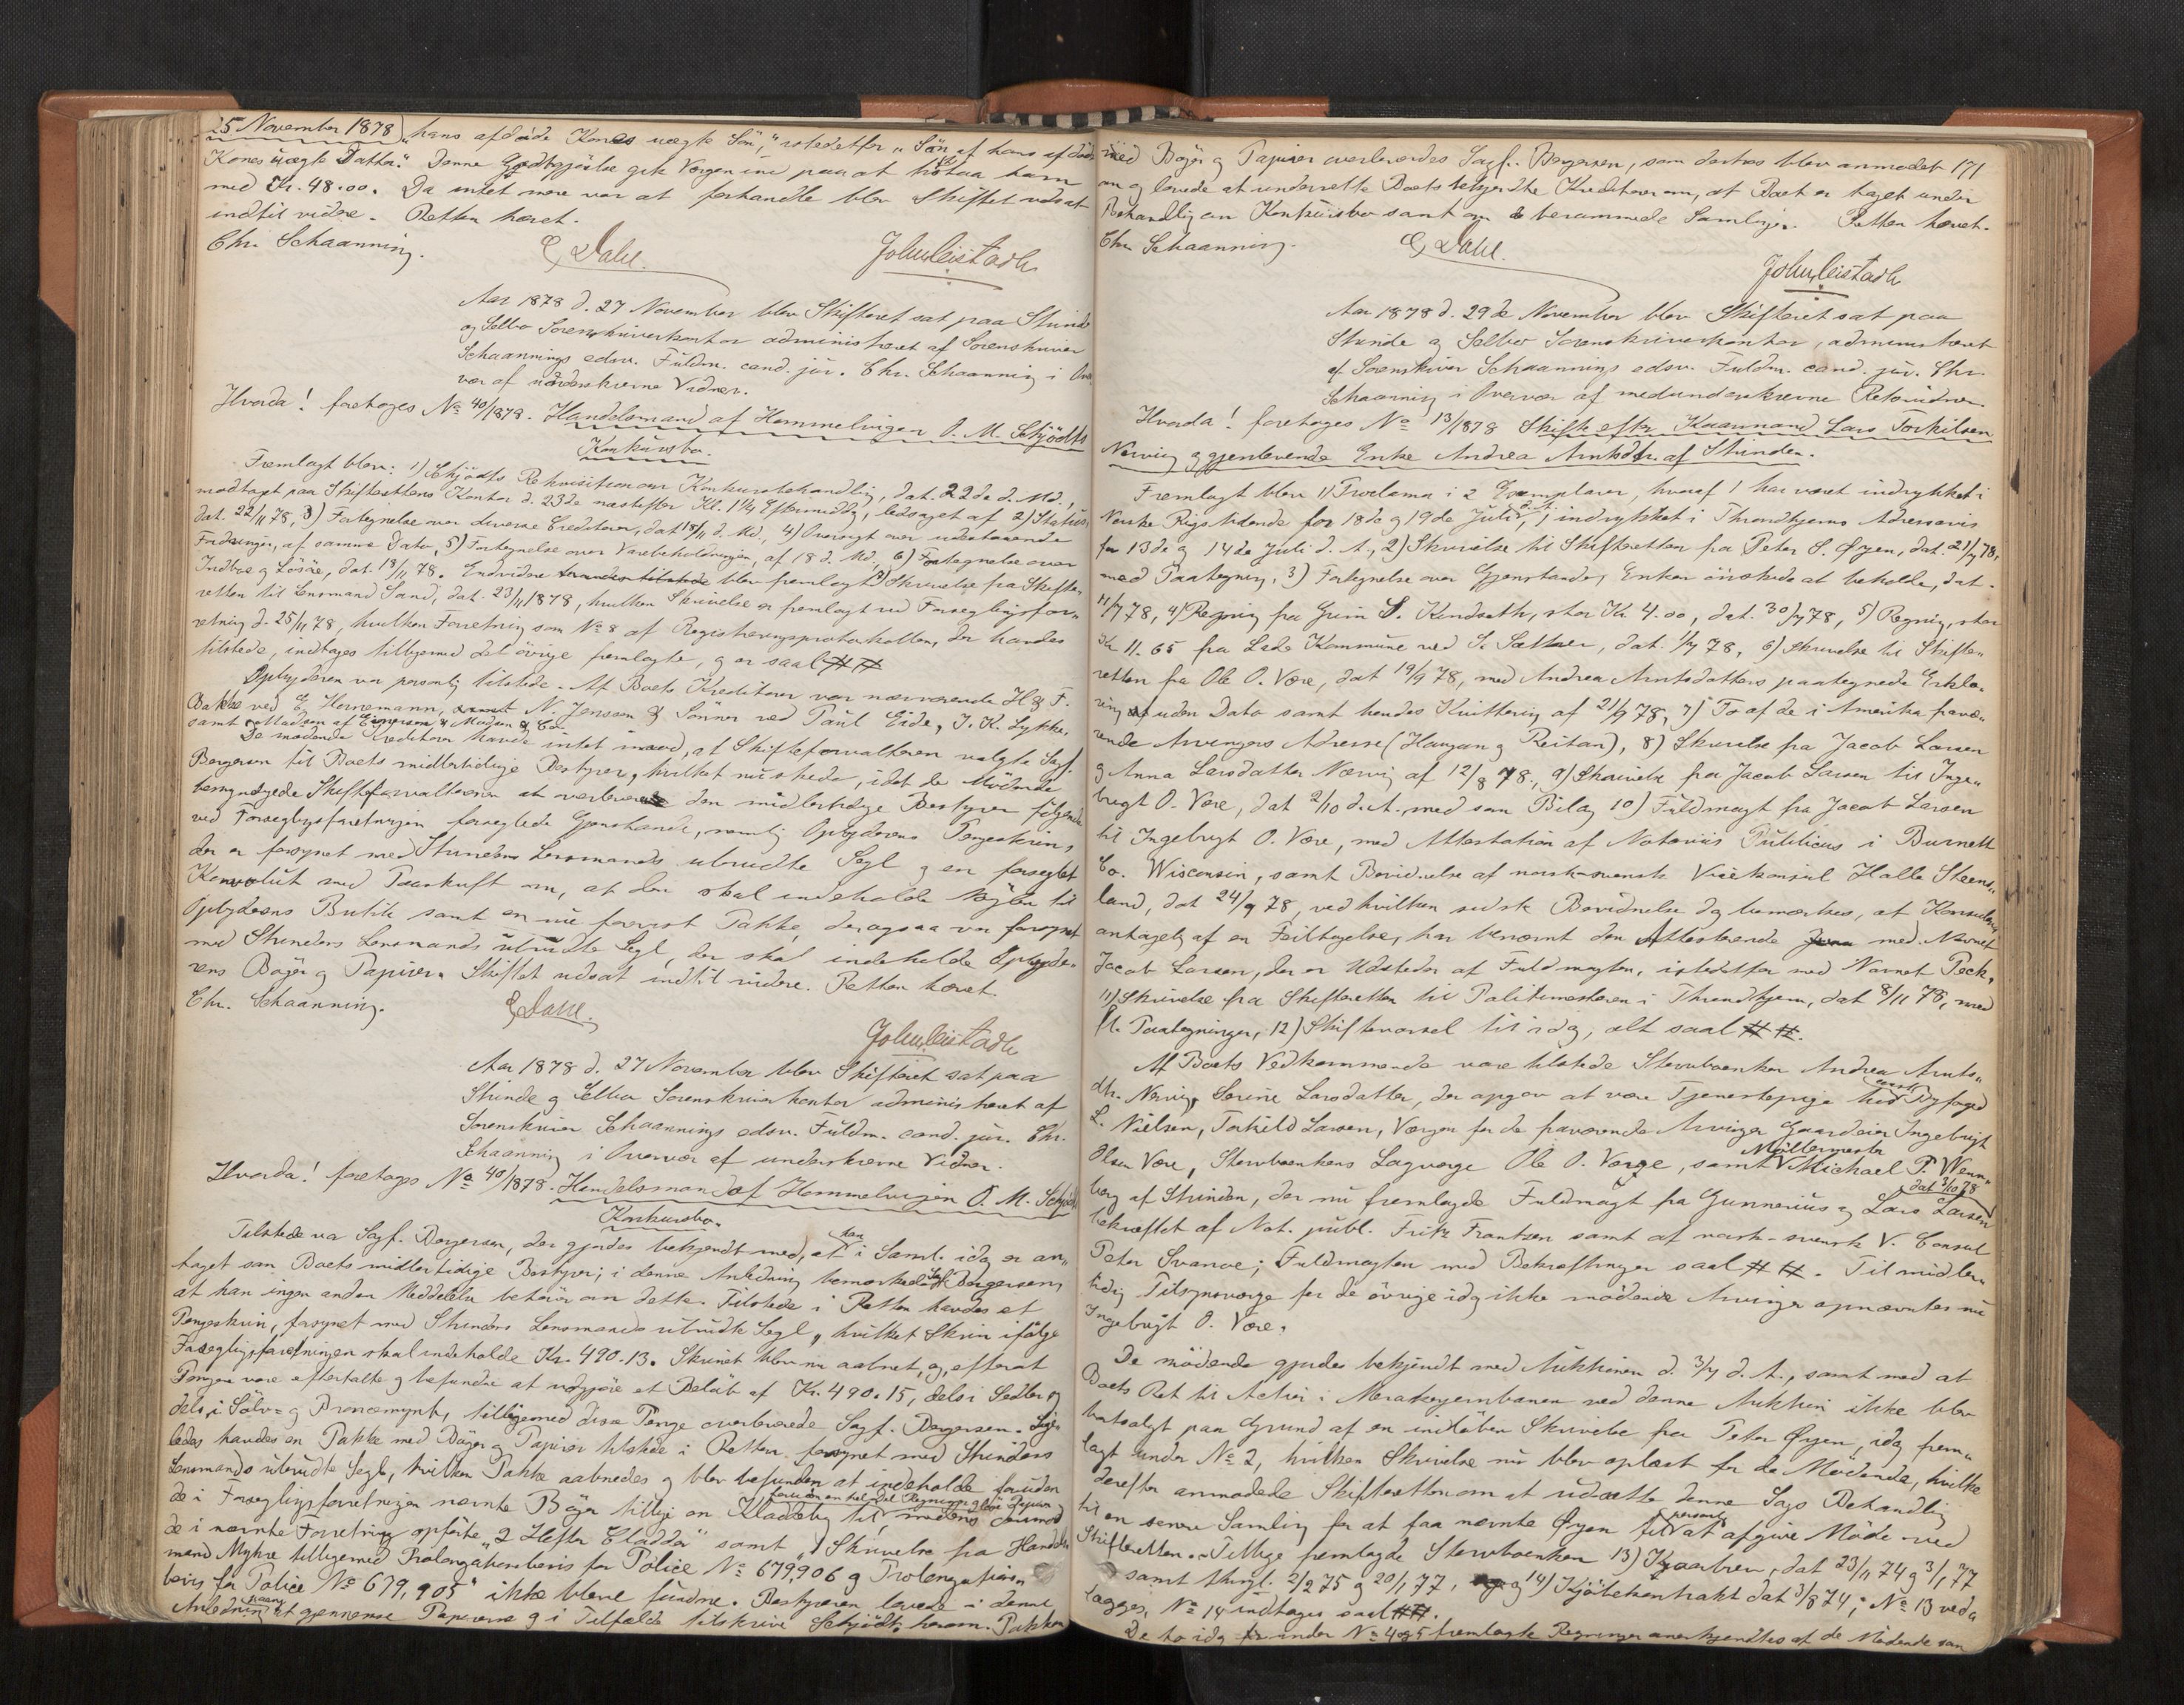 25 November 1878) "hans afdøde Kones uægte Sön," istedetfor "Sön af hans afdøde
Kones uægte Datter". Denne Godtgjörelse gik Værgen ind paa at tilstaa ham
med Kr. 48.00. Da intet mere var at forhandle blev Skiftet udsat
indtil videre. Retten hævet.
Chr. Schaanning. E Dahl. John Leistadh
Aar 1878 d. 27 November blev Skifteret sat paa Strinde
og Selbo Sorenskriverkontor administreret af Sorenskriver
Schaannings edsv. Fuldm. cand. jur. Chr. Schaanning i Over
vær af underskrevne Vidner.
Hvorda! foretoges No 40/1878. Handelsmand af Hommelvigen O. M. Schjödts
Konkursbo.
Fremlagt blev: 1) Schjödts Rekvisition om Konkursbehandling, dat. 22de d. Md.,
modtaget paa Skifterettens Kontor d. 23de næstefter Kl. 1¼ Eftermiddag, ledsaget af 2) Status,
dat. 22/11 78, 3) Fortegnelse over diverse Creditorer, dat 18/11 d. Md., 4) Oversigt over udestaaende
Fordringer, af samme Dato, 5) Fortegnelse over Varebeholdningen, af 18 d. Md., 6) Fortegnelse over
Indbo og Lösöre, dat. 18/11 78. Endvidere blev fremlagt 7) Skrivelse fra Skifte-
retten til Lensmand Sand, dat. 23/11 1878, hvilken Skrivelse er fremlagt ved Forseglingsfor-
retning d. 25/11 78, hvilken Forretning som No 8 af Registreringsprotokollen, der havdes
tilstede, indtages tilligemed det övrige fremlagte, og er saal. ## 
Opbyderen var personlig tilstede. Af Boets Kreditorer var nærværende H & F.
Bakke ved E. Hornemann, N. Jenssen & Sönner ved Paul Eide, J. K. Lykke,
samt Madsen af
De mödende Kreditorer havde intet imod, at Skifteforvalteren valgte Sagf.
Bergersen til Boets midlertidige Bestyrer, hvilket nu skede, idet de Mödende
bemyndigede Skifteforvalteren at overlevere den midlertidige Bestyrer fölgende
ved Forseglingsforretningen forseglede Gjenstande, nemlig Opbyderens Pengeskrin,
der er forsynet med Strindens Lensmands ubrudte Segl og en forseglet
Konvolut med Paaskrift om, at den skal indeholde Nöglen til
Opbyderens Butik samt en nu forevist Pakke, der ogsaa var forsynet
med Strindens Lensmands ubrudte Segl, der skal indeholde Opbyde-
rens Böger og Papirer. Skiftet udsat indtil videre. Retten hævet.
Chr. Schaanning. E Dahl. John Leistadh
Aar 1878 d. 27 November blev Skifteret sat paa
Strinde og Selbo Sorenskriverkontor administreret af
Sorenskriver Schaannings edsv. Fuldm. cand. jur. Chr.
Schaanning i Overvær af underskrevne Vidner.
Hvorda! foretoges No 40/1878. Handelsmand af Hommelvigen O. M. Schjödts
Konkursbo.
Tilstede var Sagf. Bergersen, der gjordes bekjendt med, at han i Saml. idag er an-
taget som Boets midlertidige Bestyrer; i denne Anledning bemærkede Sagf. Bergersen,
at han ingen anden Meddelelse behöver om dette. Tilstede i Retten havdes et
Pengeskrin, forsynet med Strindens Lensmands ubrudte Segl, hvilket Skrin ifölge
Forseglingsforretningen skal indeholde Kr. 490.13. Skrinet blev nu aabnet, og, efterat
Pengene vare eftertalte og befundne at udgjöre et Belöb af Kr. 490.15, dels i Sedler og
dels i Sölv- og Broncemynt, tilligemed disse Penge overleverede Sagf. Bergersen. Lige-
ledes havdes en Pakke med Böger og Papirer tilstede i Retten forsynet med Strindens
Lensmands ubrudte Segl, hvilken Pakke aabnedes og blev befunden at indeholde foruden
de i Forseglingsforretningen nævnte Böger tillige en Kladdebog foruden en hel Del Regninger og löse Papirer
de i nævnte Forretning opförte "2 Hefter Cladder" samt "1 Skrivelse fra Handels
mand Myhre tilligemed Prolongationsbevis for Police No 679,906 og Prolongations-
bevis for Police No 679,905" ikke bleve fundne. Bestyreren lovede i denne
Anledning at gjennemse Papirerne og i Tilfælde tilskrive Schjödt herom. Pakken
med Böger og Papirer overleveredes Sagf. Bergersen, som derhos blev anmodet 171
om og lovede at underrette Boets bekjendte Kreditorer om, at Boet er taget under
Behandling som Konkursbo samt om de berammede Samlinger. Retten hævet.
Chr. Schaanning. E Dahl. John Leistadh
Aar 1878 d. 29de November blev Skifteret sat paa
Strinde og Selbo Sorenskriverkontor, administreret
af Sorenskriver Schaannings edsv. Fuldm. cand. jur. Chr.
Schaanning i Overvær af medunderskrevne Retsvidner.
Hvorda! foretoges No 13/1878 Skifte efter Kaarmand Lars Torkilsen
Nerviig og gjenlevende Enke Andrea Arntsdtr. af Strinden.
Fremlagt blev 1) Proclama i 2 Exemplarer, hvoraf 1 har været indrykket i
Norske Rigstidende for 18de og 19de Juli d. A., 1 indrykket i Throndhjems Adresseavis
for 13de og 14de Juli d. A., 2) Skrivelse til Skifteretten fra Peter S. Øyen, dat. 21/7 78,
med Paategning, 3) Fortegnelse over Gjenstande, Enken önskede at beholde, dat.
11/7 78, 4) Regning fra Grim S. Kindseth, stor Kr. 4.00, dat. 30/7 78, 5) Regning, stor
Kr 11.65 fra Lade Kommune ved S. Sæther, dat. 1/7 78, 6) Skrivelse til Skifte-
retten fra Ole O. Være, dat 19/9 78, med Andrea Arntsdatters paategnede Erklæ-
ring uden Dato samt hendes Kvittering af 21/9 78, 7) To af de i Amerika fravæ-
rende Arvingers Adresse (Haugan og Reitan), 8) Skrivelse fra Jacob Larsen
og Anna Larsdatter Nervig af 12/8 78., 9) Skrivelse fra Jacob Larsen til Inge-
brigt O. Være, dat 2/10 d. A., med som Bilag 10) Fuldmagt fra Jacob Larsen
til Ingebrigt O. Være, med Attestation af Notarius Publicus i Burnett
Co. Wisconsin, samt Bevidnelse af norsk-svensk Vicekonsul Halle Steens-
land, dat 24/9 78, ved hvilken sidste Bevidnelse dog bemærkes, at Konsulen,
antagelig af en Feiltagelse, har benævnt den Attesterende med Navnet
Jacob Larsen, der er Udsteder af Fuldmagten, istedetfor med Navnet Peck,
11) Skrivelse fra Skifteretten til Politimesteren i Throndhjem, dat 8/11 78, med
fl. Paategninger, 12) Skiftevarsel til idag, alt saal. ##.
Af Boets Vedkommende vare tilstede Stervboenken Andrea Arnts-
dtr. Nervig, Serine Larsdatter, der opgav at være Tjenestepige hos Byfoged
L. Nielsen, Torkild Larsen, Værgen for de fraværende Arvinger Gaardeier Ingebrigt
Olsen Være, Stervboenkens Lagværge Ole O. Værge, samt Möllermester Michael P. Wenn-
berg af Strinden, der nu fremlagde Fuldmagt fra Gunnerius og Lars Larsen dat 3/10 78
bekræftet af Not. publ. Fritz Frantzen samt af norsk-svensk V. Consul
Peter Svanoe; Fuldmagten med Bekræftninger saal. ##. Til midler-
tidig Tilsynsværge for de övrige idag ikke mödende Arvinger opnævntes nu
Ingebrigt O. Være.
De mödende gjordes bekjendt med Auktionen d. 3/7 d. A., samt med at
Boets Ret til Actier i Merakerjernbanen ved denne Auktion ikke blev
bortsolgt paa Grund af en indlöben Skrivelse fra Peter Øyen, idag frem-
lagt under No 2, hvilken Skrivelse nu blev oplæst for de Mödende, hvilke
derefter anmodede Skifteretten om at udsætte denne Sags Behandling
til en senere Samling for at faa nævnte Øyen til personlig at afgive Möde ved
Skifteretten. Tillige fremlagde Stervboenken 13) Kaarbrev, dat 23/11 74 og 3/1 77
samt thingl. 2/2 75 og 20/1 77, og 14) Kjöbekontrakt dat 3/8 74; No 13 ved-
lægges, No 14 indtages saal. ##.
De to idag under No 4 og 5 fremlagte Regninger anerkjendtes af de Mödende som